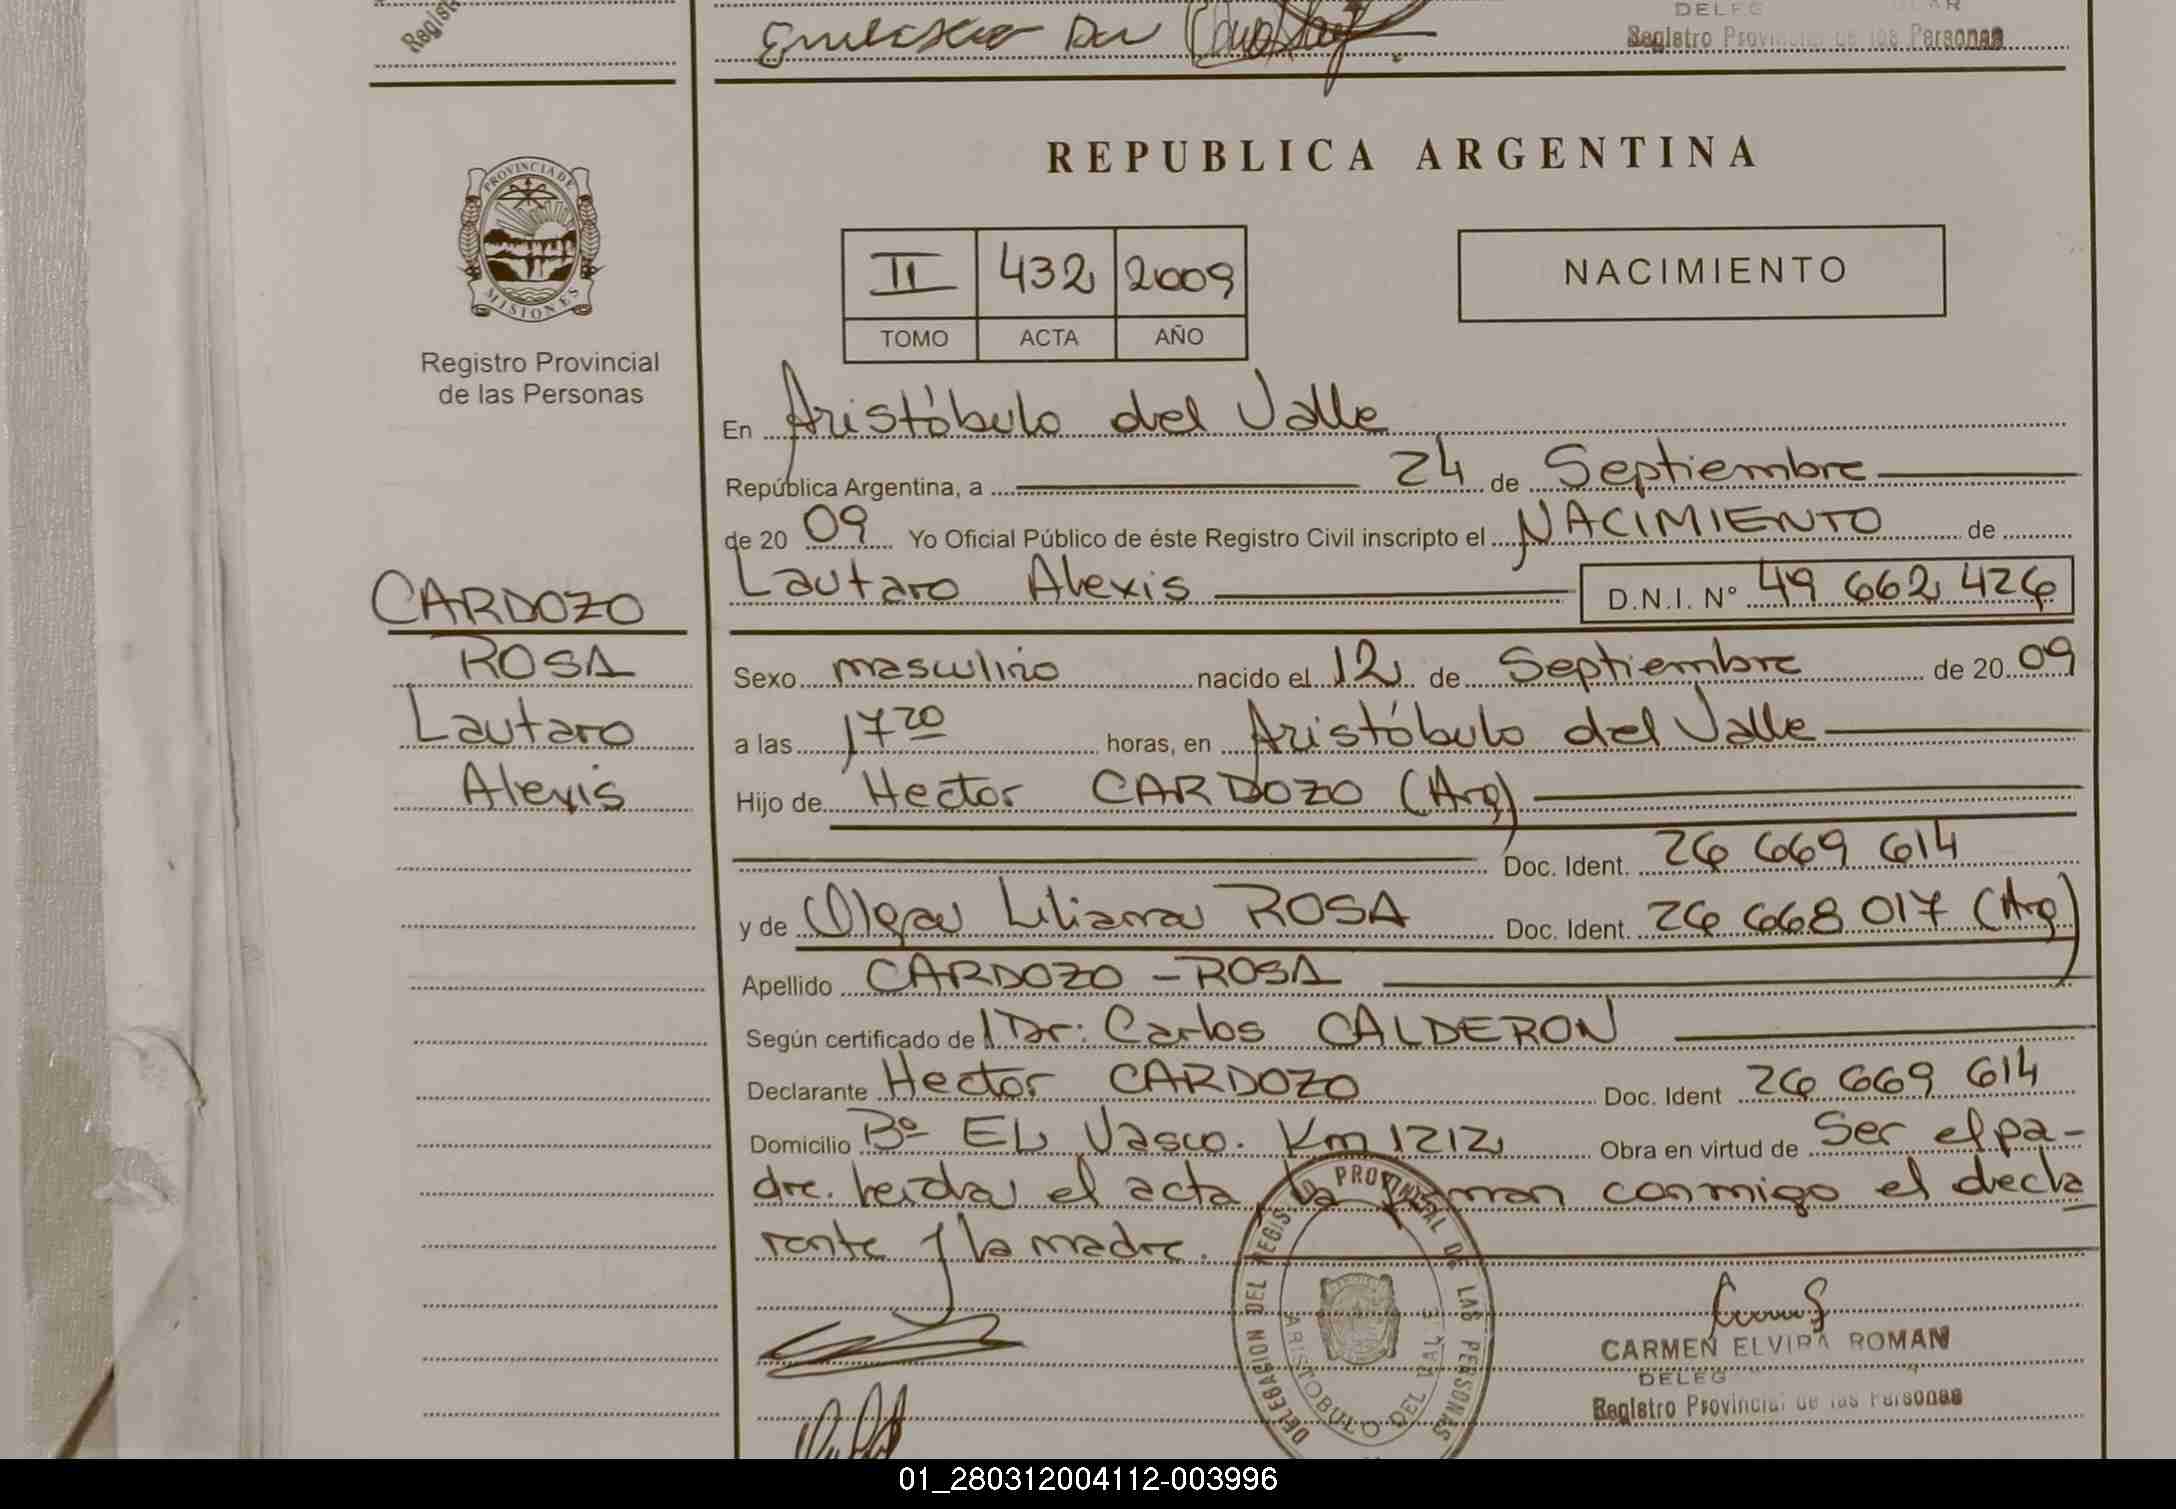 Regist
DELEG
Registro Provincial de las Personas
REPUBLICA ARGENTINA
PROVINCIA DE
MISIONES
Registro Provincial
de las Personas
II 432 2009
TOMO ACTA AÑO
NACIMIENTO
En Aristóbulo del Valle
República Argentina, a 24 de Septiembre
de 20 09 Yo Oficial Público de éste Registro Civil inscripto el NACIMIENTO de
Lautaro Alexis D.N.I. N° 49 662 426
CARDOZO
ROSA
Lautaro
Alexis
Sexo masculino nacido el 12 de Septiembre de 20 09
a las 17 20 horas, en Aristóbulo del Valle
Hijo de Hector CARDOZO (Arg)
Doc. Ident. 26 669 614
y de Olga Liliana ROSA Doc. Ident. 26 668 017 (Arg)
Apellido CARDOZO - ROSA
Según certificado de Dr: Carlos CALDERON
Declarante Hector CARDOZO Doc. Ident 26 669 614
Domicilio Bº EL Vasco. Km 1212 Obra en virtud de Ser el pa-
dre. leida el acta la firman conmigo el decla
rante y la madre.
DELEGACION DEL REGISTRO PROVINCIAL DE LAS PERSONAS
ARISTOBULO DEL VALLE
CARMEN ELVIRA ROMAN
DELEG
Registro Provincial de las Personas
01_280312004112-003996